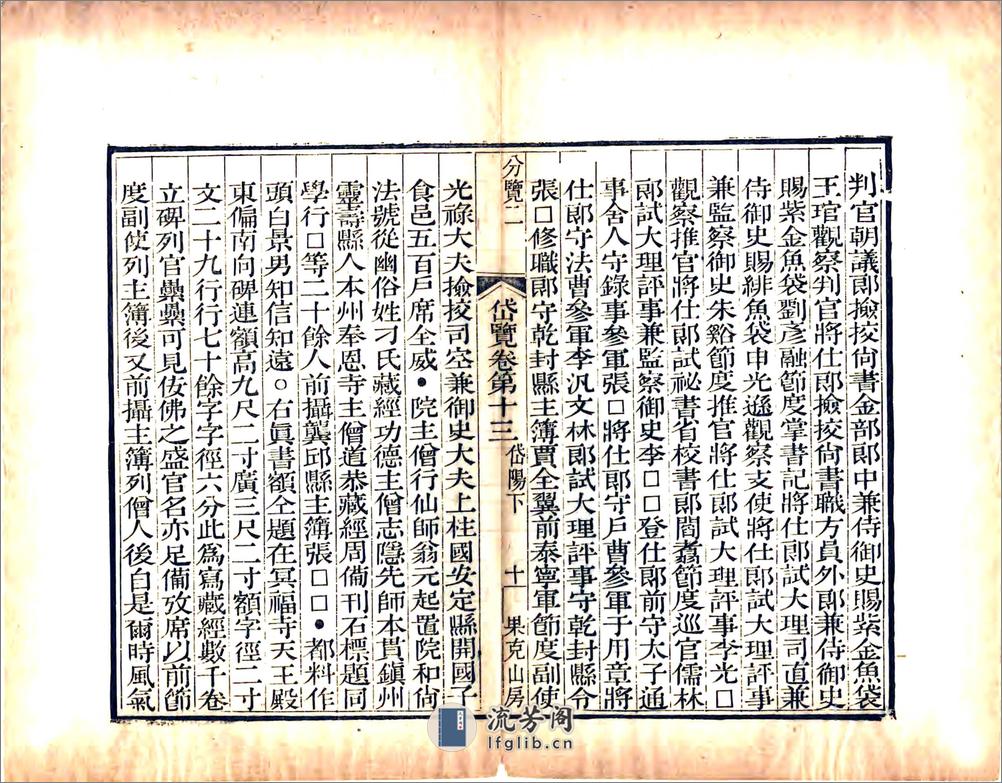 判官朝議郎撿挍尙書金部郎中兼侍御史賜紫金魚袋
王琯觀察判官將仕郎撿挍尙書職方員外郎兼侍御史
賜紫金魚袋劉彥融節度掌書記將仕郎試大理司直兼
侍御史賜緋魚袋申光遜觀察支使將仕郎試大理評事
兼監察御史朱谿節度推官將仕郎試大理評事李光□
觀察推官將仕郎試祕書省校書郎閻翥節度巡官儒林
郎試大理評事兼監察御史李□□登仕郎前守太子通
事舍人守錄事參軍張□將仕郎守戶曹參軍于用章將
仕郎守法曹參軍李汎文林郎試大理評事守乾封縣令
張□修職郎守乾封縣主簿賈全翼前泰寧軍節度副使
分覽二
岱覽卷第十三
岱陽下
十一
果克山房
光祿大夫撿挍司空兼御史大夫上柱國安定縣開國子
食邑五百戶席全威●院主僧行仙師翁元起置院和尙
法號從幽俗姓刁氏藏經功德主僧志隱先師本貫鎮州
靈壽縣人本州奉恩寺主僧道恭藏經周備刊石標題同
學行□等二十餘人前攝龔邱縣主簿張□□●都料作
頭白景男知信知遠○右眞書額仝題在冥福寺天王殿
東偏南向碑連額高九尺二寸廣三尺二寸額字徑二寸
文二十九行行七十餘字字徑六分此爲寫藏經數千卷
立碑列官纍纍可見佞佛之盛官名亦足備攷席以前節
度副使列主簿後又前攝主簿列僧人後自是爾時風氣
流芳阁
lfglib.cn